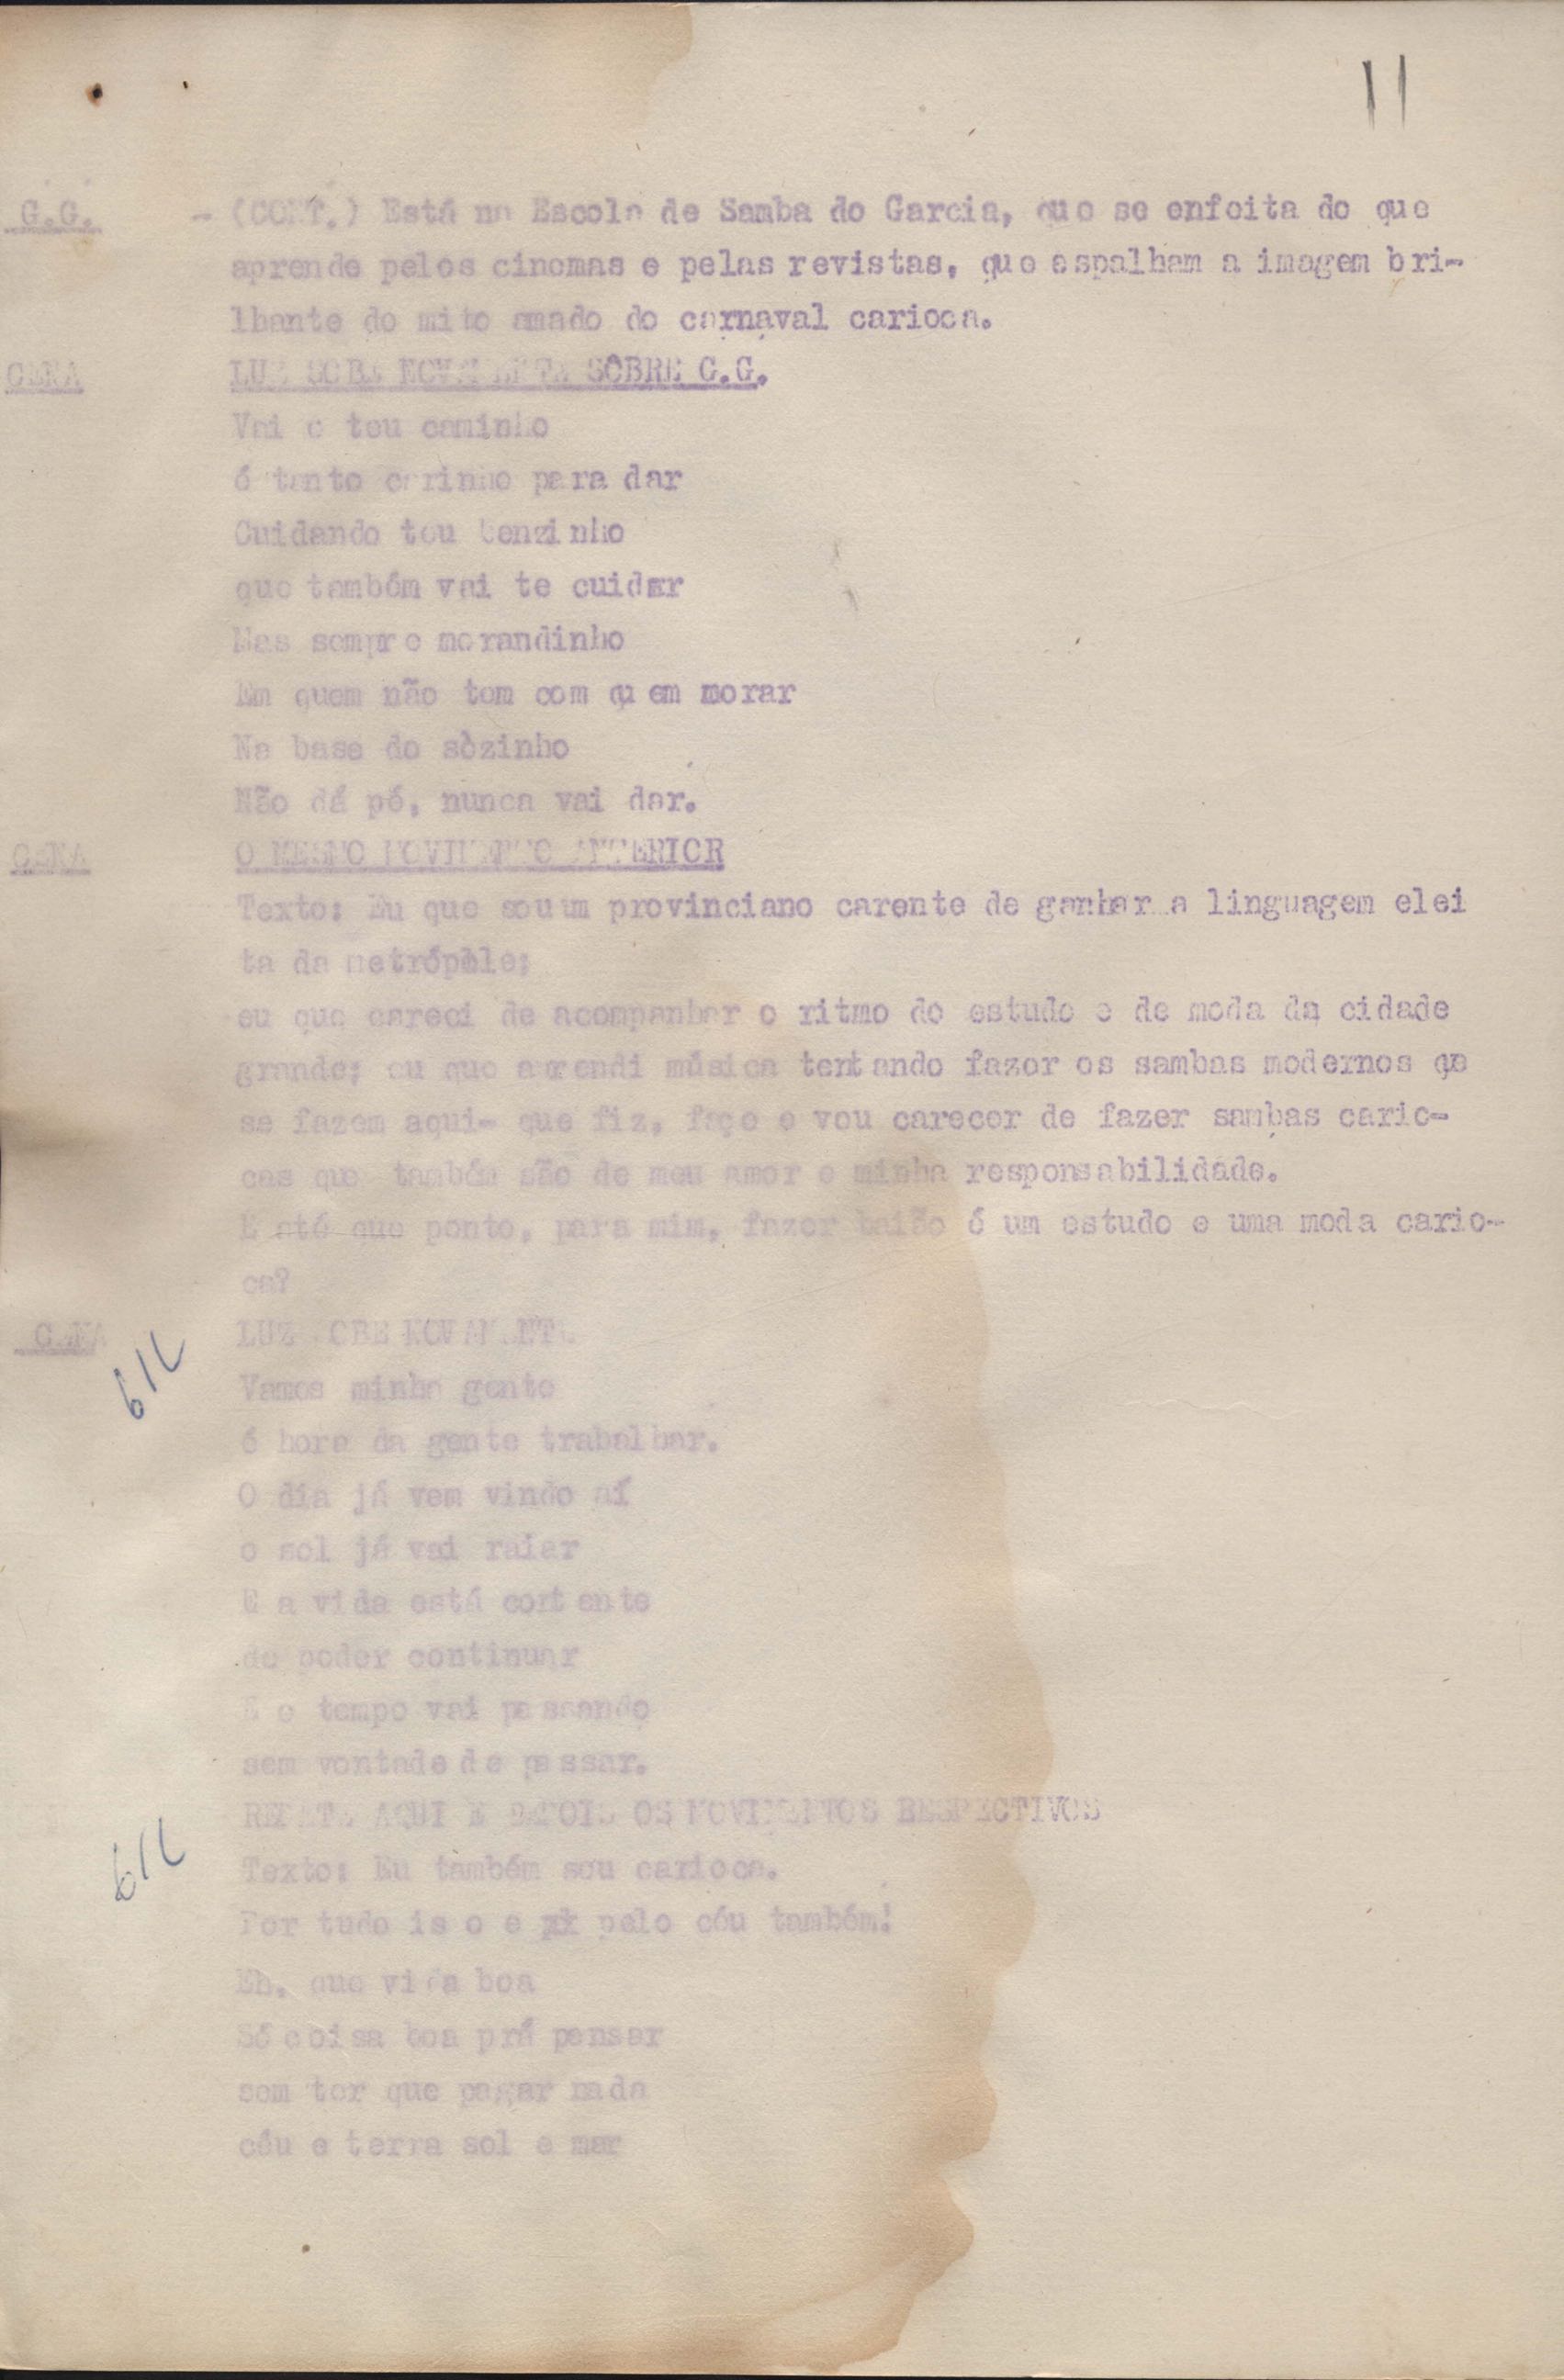 11
G.G. - (CONT.) Está na Escola de Samba do Garcia, que se enfeita do que
aprende pelos cinemas e pelas revistas, que espalham a imagem bri-
lhante do mito amado do carnaval carioca.
CENA LUZ SOBE NOVAMENTE SÔBRE G.G.
Vai o teu caminho
é tanto carinho para dar
Cuidando teu benzinho
que também vai te cuidar
Mas sempre morandinho
Em quem não tem com quem morar
Na base do sòzinho
Não dá pé, nunca vai dar.
CENA O MESMO MOVIMENTO ANTERIOR
Texto: Eu que sou um provinciano carente de ganhar a linguagem elei
ta da metrópole;
eu que careci de acompanhar o ritmo de estudo e de moda da cidade
grande; eu que aprendi música tentando fazer os sambas modernos qe
se fazem aqui- que fiz, faço e vou carecer de fazer sambas cario-
cas que também são de meu amor e minha responsabilidade.
E até que ponto, para mim, fazer baião é um estudo e uma moda cario-
ca?
CENA LUZ SOBE NOVAMENTE
Vamos minha gente
é hora da gente trabalhar.
O dia já vem vindo aí
o sol já vai raiar
E a vida está contente
de poder continuar
E o tempo vai passando
sem vontade de passar.
REPETE AQUI E DEPOIS OS MOVIMENTOS RESPECTIVOS
Texto: Eu também sou carioca.
Por tudo isso e pelo céu também!
Eh, que vida boa
Só coisa boa prá pensar
sem ter que pagar nada
céu e terra sol e mar